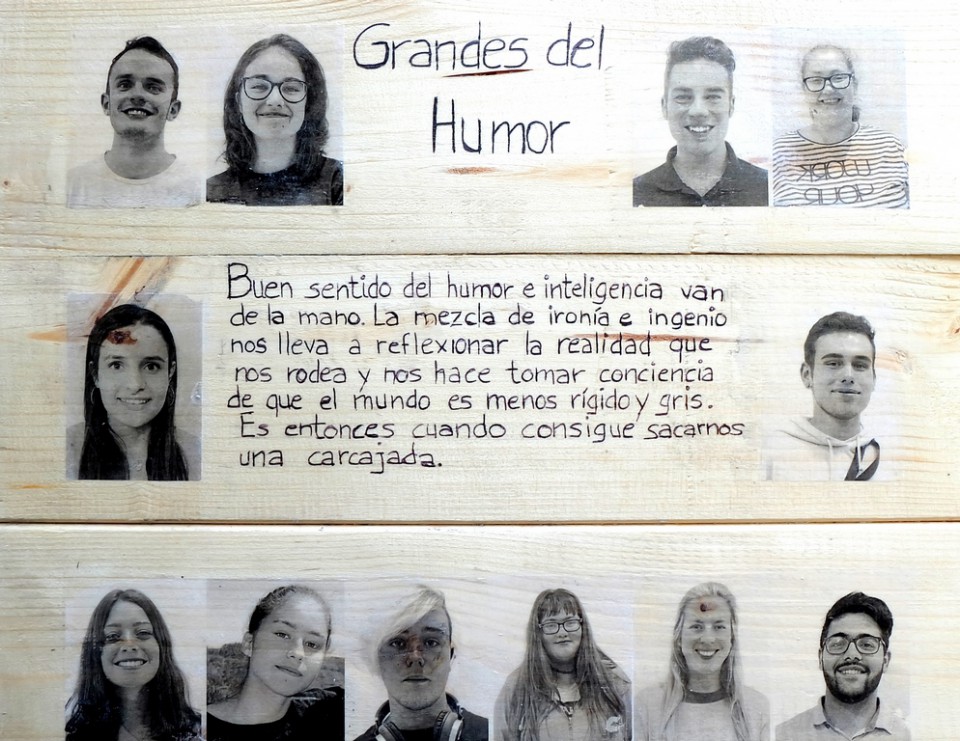 Grandes del
Humor
WORK
YOUR
Buen sentido del humor e inteligencia van
de la mano. La mezcla de ironía e ingenio
nos lleva a reflexionar la realidad que
nos rodea y nos hace tomar conciencia
de que el mundo es menos rígido y gris.
Es entonces cuando consigue sacarnos
una carcajada.